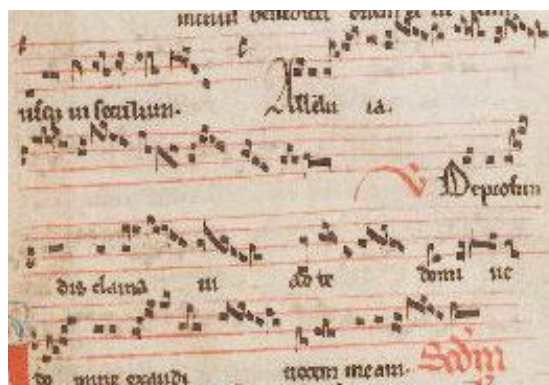 usq; in seculum. Allelu ia.
V Deprofun
dis clama ui ad te domi ne
do mine exaudi uocem meam. Scdm